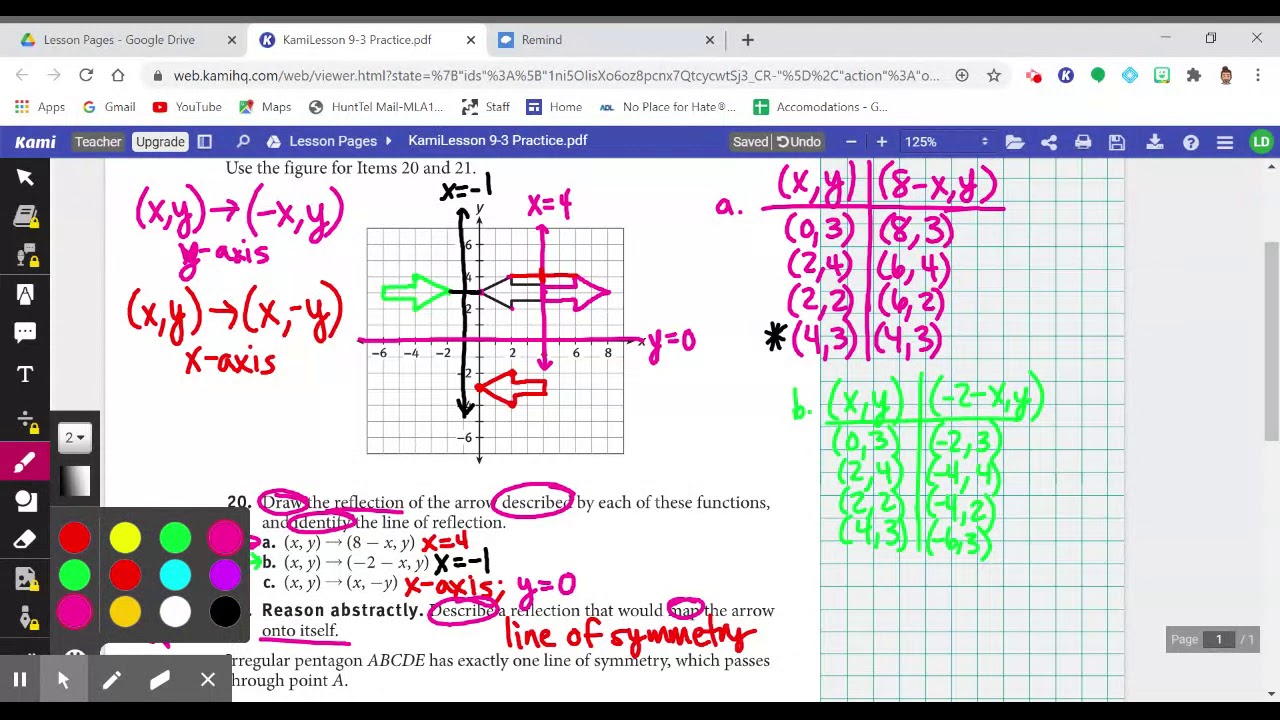 Lesson Pages - Google Drive
KamiLesson 9-3 Practice.pdf
Remind
web.kamihq.com/web/viewer.html?state=%7B"ids"%3A%5B"1ni5OlisXo6oz8pcnx7QtcycwtSj3_CR-"%5D%2C"action"%3A"o...
Apps
Gmail
YouTube
Maps
HuntTel Mail-MLA1...
Staff
Home
ADL No Place for Hates...
Accomodations - G...
Kami
Teacher
Upgrade
Lesson Pages
KamiLesson 9-3 Practice.pdf
Saved
Undo
125%
LD
Use the figure for Items 20 and 21.
(x,y)→(-x,y)
y-axis
(x,y)→(x,-y)
x-axis
x=-1
x=4
y
6
4
2
-6 -4 -2 2 6 8
x
y=0
-2
-6
a. (x,y) (8-x,y)
(0,3) (8,3)
(2,4) (6,4)
(2,2) (6,2)
* (4,3) (4,3)
b. (x,y) (-2-x,y)
(0,3) (-2,3)
(2,4) (-4,4)
(2,2) (-4,2)
(4,3) (-6,3)
20. Draw the reflection of the arrow described by each of these functions,
and identify the line of reflection.
a. (x, y) → (8 − x, y) x=4
b. (x, y) → (−2 − x, y) x=-1
c. (x, y) → (x, −y) x-axis; y=0
Reason abstractly. Describe a reflection that would map the arrow
onto itself.
line of symmetry
rregular pentagon ABCDE has exactly one line of symmetry, which passes
hrough point A.
2
Page 1 / 1